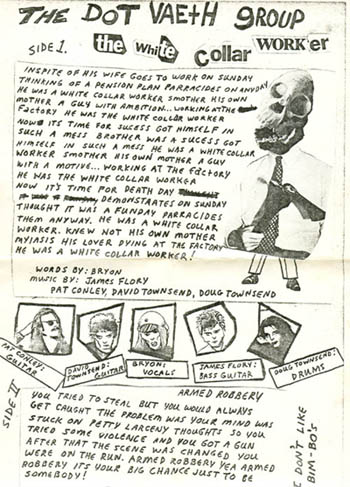 THE DOT VAETH GROUP
SIDE 1. the White Collar WORK'ER
INSPITE OF HIS WIFE GOES TO WORK ON SUNDAY
THINKING OF A PENSION PLAN PARRACIDES ON ANYDAY
HE WAS A WHITE COLLAR WORKER SMOTHER HIS OWN
MOTHER A GUY WITH AMBITION... WORKING AT THE
FACTORY HE WAS THE WHITE COLLAR WORKER
NOW ITS TIME FOR SUCESS GOT HIMSELF IN
SUCH A MESS BROTHER WAS A SUCESS GOT
HIMSELF IN SUCH A MESS HE WAS A WHITE COLLAR
WORKER SMOTHER HIS OWN MOTHER A GUY
WITH A MOTIVE... WORKING AT THE FACTORY
HE WAS THE WHITE COLLAR WORKER
NOW IT'S TIME FOR DEATH DAY
DEMONSTAATES ON SUNDAY
THOUGHT IT WAS A FUNDAY PARRACIDES
THEM ANYWAY. HE WAS A WHITE COLLAR
WORKER. KNEW NOT HIS OWN MOTHER
MYIASIS HIS LOVER DYING AT THE FACTORY
HE WAS A WHITE COLLAR WORKER!
WORDS BY: BRYON
MUSIC BY: JAMES FLORY
PAT CONLEY, DAVID TOWNSEND, DOUG TOWNSEND
PAT CONLEY:
GUITAR
DAVID
TOWNSEND: GUITAR
BRYON:
VOCALS
JAMES FLORY:
BASS GUITAR
DOUG TOWNSEND:
DRUMS
SIDE II
ARMED ROBBERY
YOU TRIED TO STEAL BUT YOU WOULD ALWAYS
GET CAUGHT THE PROBLEM WAS YOUR MIND WAS
STUCK ON PETTY LARCENY THOUGHTS SO YOU
TRIED SOME VIOLENCE AND YOU GOT A GUN
AFTER THAT THE SCENE WAS CHANGED YOU
WERE ON THE RUN. ARMED ROBBERY YEA ARMED
ROBBERY ITS YOUR BIG CHANCE JUST TO BE
SOMEBODY!
DON'T LIKE
BIM-BO'S